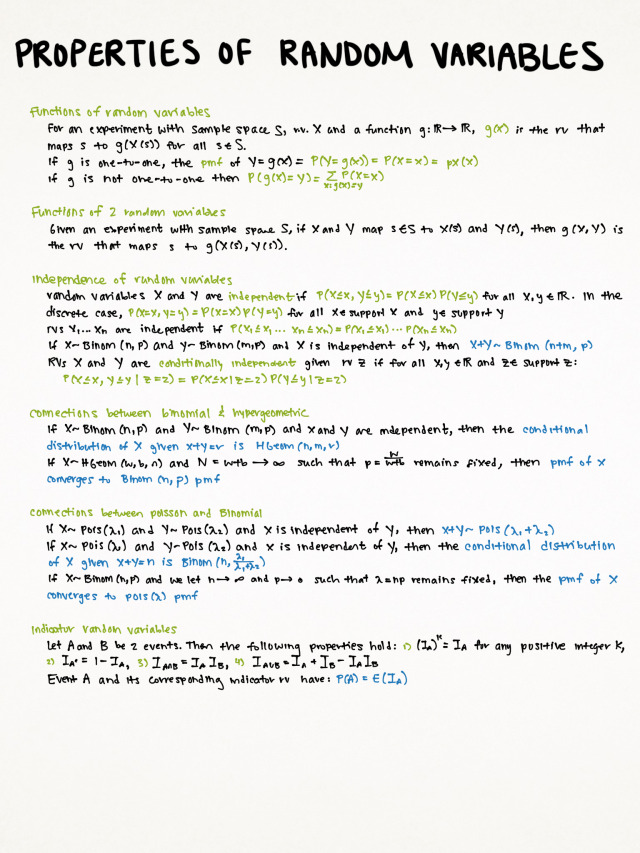 PROPERTIES OF RANDOM VARIABLES
Functions of random variables
For an experiment with sample space S, r.v. X and a function g: ℝ→ℝ, g(X) is the rv that
maps s to g(X(s)) for all s∈S.
If g is one-to-one, the pmf of Y=g(x) = P(Y=g(x)) = P(X=x) = px(x)
If g is not one-to-one then P(g(X)=Y) = Σ_{x:g(x)=y} P(X=x)
Functions of 2 random variables
Given an experiment with sample space S, if X and Y map s∈S to X(s) and Y(s), then g(X,Y) is
the rv that maps s to g(X(s), Y(s)).
Independence of random variables
random variables X and Y are independent if P(X≤x, Y≤y) = P(X≤x)P(Y≤y) for all x,y ∈ ℝ. In the
discrete case, P(X=x, Y=y) = P(X=x)P(Y=y) for all x∈support X and y∈support Y
rvs X₁,... Xn are independent if P(X₁≤x₁ ... Xn≤xn) = P(X₁≤x₁) ... P(Xn≤xn)
If X~Binom(n,p) and Y~Binom(m,p) and X is independent of Y, then X+Y~Binom(n+m, p)
RVs X and Y are conditionally independent given rv Z if for all x,y∈ℝ and z∈support Z:
P(X≤x, Y≤y | Z=z) = P(X≤x | Z=z) P(Y≤y | Z=z)
connections between binomial & hypergeometric
If X~Binom(n,p) and Y~Binom(m,p) and X and Y are independent, then the conditional
distribution of X given X+Y=r is HGeom(n,m,r)
If X~HGeom(w,b,n) and N=w+b → ∞ such that p = w/(w+b) remains fixed, then pmf of X
converges to Binom(n,p) pmf
connections between poisson and Binomial
If X~Pois(λ₁) and Y~Pois(λ₂) and X is independent of Y, then X+Y~Pois(λ₁+λ₂)
If X~Pois(λ₁) and Y~Pois(λ₂) and X is independent of Y, then the conditional distribution
of X given X+Y=n is Binom(n, λ₁/(λ₁+λ₂))
If X~Binom(n,p) and we let n→∞ and p→0 such that λ=np remains fixed, then the pmf of X
converges to Pois(λ) pmf
Indicator random variables
Let A and B be 2 events. Then the following properties hold: 1) (I_A)^k = I_A for any positive integer k,
2) I_Aᶜ = 1-I_A, 3) I_A∩B = I_A I_B, 4) I_A∪B = I_A + I_B - I_A I_B
Event A and its corresponding indicator rv have: P(A) = E(I_A)